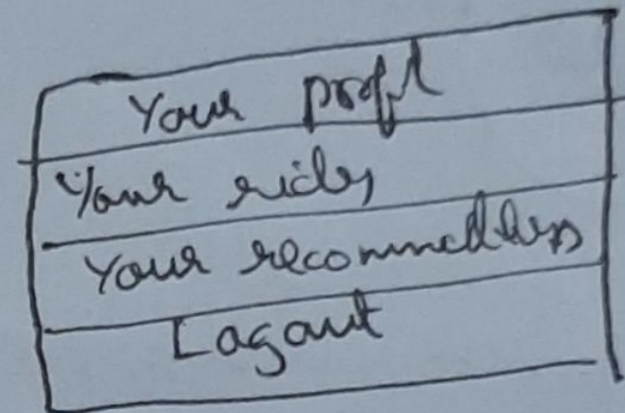 Your profl
Your rides
Your recommedtens
Logout